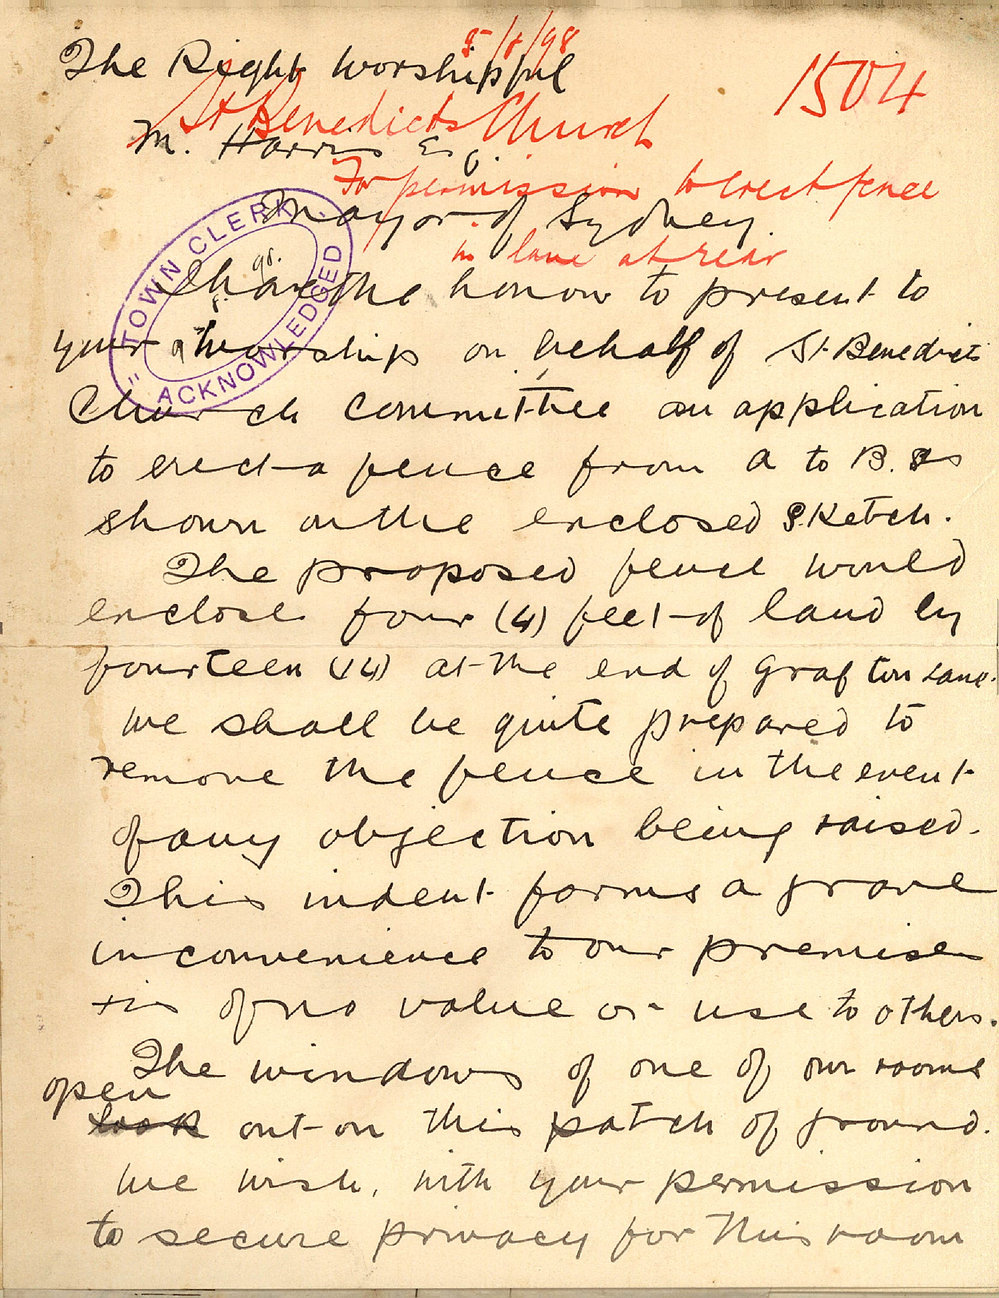 5/8/98
The Right Worshipful
1504
St Benedicts Church
M. Harris Esq.
For permission to erect fence
Mayor of Sydney.
in lane at rear
TOWN CLERK
ACKNOWLEDGED
I have the honour to present to
your worship on behalf of St. Benedicts
Church Committee an application
to erect a fence from A to B. as
shown on the enclosed Sketch.
The proposed fence would
enclose four (4) feet of land by
fourteen (14) at the end of Grafton Lane.
We shall be quite prepared to
remove the fence in the event
of any objection being raised.
This indent forms a grave
inconvenience to our premises
+ is of no value or use to others.
The windows of one of our rooms
open
look out on this patch of ground.
We wish, with your permission
to secure privacy for this room